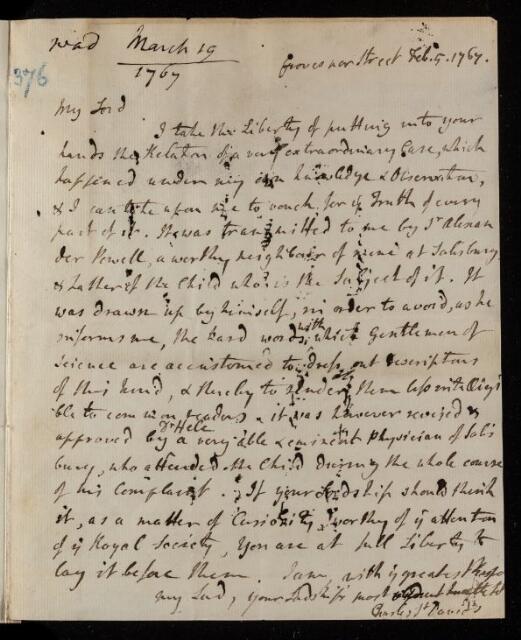 read March 19
1767
Grosvenor Street Feb. 5. 1767.
376
My Lord
I take the Liberty of putting into your
hands the Relation of a very extraordinary Case, which
happened under my own knowledge & Observation,
& I can take upon me to vouch for ye Truth of every
part of it. It was transmitted to me by Sr Alexan
der Powell, a worthy neighbour of mine at Salisbury
& Father of the Child who is the Subject of it. It
was drawn up by himself, in order to avoid, as he
informs me, the hard words with which Gentlemen of
Science are accustomed to dress out descriptions
of this kind, & thereby to render them less intelligi
ble to common readers. it was however revised &
approved by Dr Hele a very able & eminent Physician of Salis
bury, who attended the Child during the whole course
of his Complaint. If your Lordship should think
it, as a matter of Curiosity, worthy of ye attention
of ye Royal Society, You are at full Liberty to
lay it before them. I am, with ye greatest
my Lord, your Lordship's most obedient humble
Charles St Davids